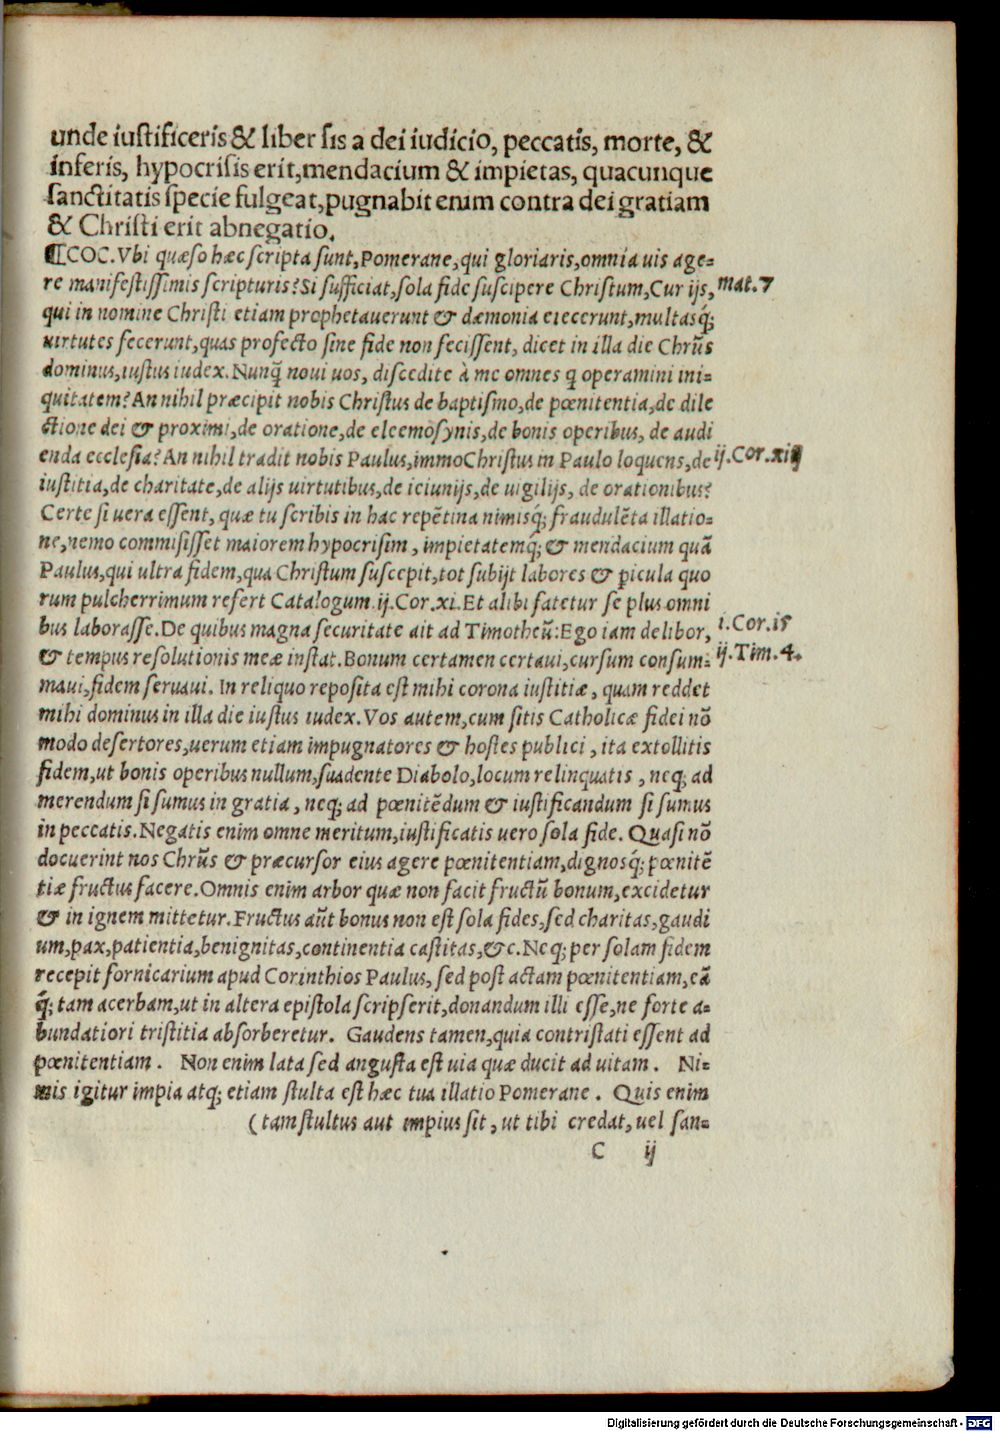 unde iustificeris & liber sis a dei iudicio, peccatis, morte, &
inferis, hypocrisis erit, mendacium & impietas, quacunque
sanctitatis specie fulgeat, pugnabit enim contra dei gratiam
& Christi erit abnegatio.
¶COC. Vbi quæso hæc scripta sunt, Pomerane, qui gloriaris, omnia uis age=
re manifestissimis scripturis? Si sufficiat, sola fide suscipere Christum, Cur ijs, Mat. 7
qui in nomine Christi etiam prophetauerunt & dæmonia eiecerunt, multasq́;
uirtutes fecerunt, quas profecto sine fide non fecissent, dicet in illa die Chrūs
dominus, iustus iudex. Nunq̃ noui uos, discedite à me omnes q operamini ini=
quitatem? An nihil præcipit nobis Christus de baptismo, de pœnitentia, de dile
ctione dei & proximi, de oratione, de eleemosynis, de bonis operibus, de audi
enda ecclesia? An nihil tradit nobis Paulus, immo Christus in Paulo loquens, de ij. Cor. xiij
iustitia, de charitate, de alijs uirtutibus, de ieiunijs, de uigilijs, de orationibus?
Certe si uera essent, quæ tu scribis in hac repētina nimisq́; fraudulēta illatio=
ne, nemo commisisset maiorem hypocrisim, impietatemq́; & mendacium quā
Paulus, qui ultra fidem, qua Christum suscepit, tot subijt labores & ꝑicula quo
rum pulcherrimum refert Catalogum ij. Cor. xi. Et alibi fatetur se plus omni
bus laborasse. De quibus magna securitate ait ad Timotheū: Ego iam delibor, i. Cor. 15
& tempus resolutionis meæ instat. Bonum certamen certaui, cursum consum= ij. Tim. 4.
maui, fidem seruaui. In reliquo reposita est mihi corona iustitiæ, quam reddet
mihi dominus in illa die iustus iudex. Vos autem, cum sitis Catholicæ fidei nō
modo desertores, uerum etiam impugnatores & hostes publici, ita extollitis
fidem, ut bonis operibus nullum, suadente Diabolo, locum relinquatis, neq; ad
merendum si sumus in gratia, neq; ad pœnitēdum & iustificandum si sumus
in peccatis. Negatis enim omne meritum, iustificatis uero sola fide. Quasi nō
docuerint nos Chrūs & præcursor eius agere pœnitentiam, dignosq́; pœnitē
tiæ fructus facere. Omnis enim arbor quæ non facit fructū bonum, excidetur
& in ignem mittetur. Fructus aūt bonus non est sola fides, sed charitas, gaudi
um, pax, patientia, benignitas, continentia castitas, &c. Neq; per solam fidem
recepit fornicarium apud Corinthios Paulus, sed post actam pœnitentiam, eā
q́; tam acerbam, ut in altera epistola scripserit, donandum illi esse, ne forte a=
bundatiori tristitia absorberetur. Gaudens tamen, quia contristati essent ad
pœnitentiam. Non enim lata sed angusta est uia quæ ducit ad uitam. Ni=
mis igitur impia atq; etiam stulta est hæc tua illatio Pomerane. Quis enim
(tam stultus aut impius sit, ut tibi credat, uel san=
C ij
Digitalisierung gefördert durch die Deutsche Forschungsgemeinschaft - DFG